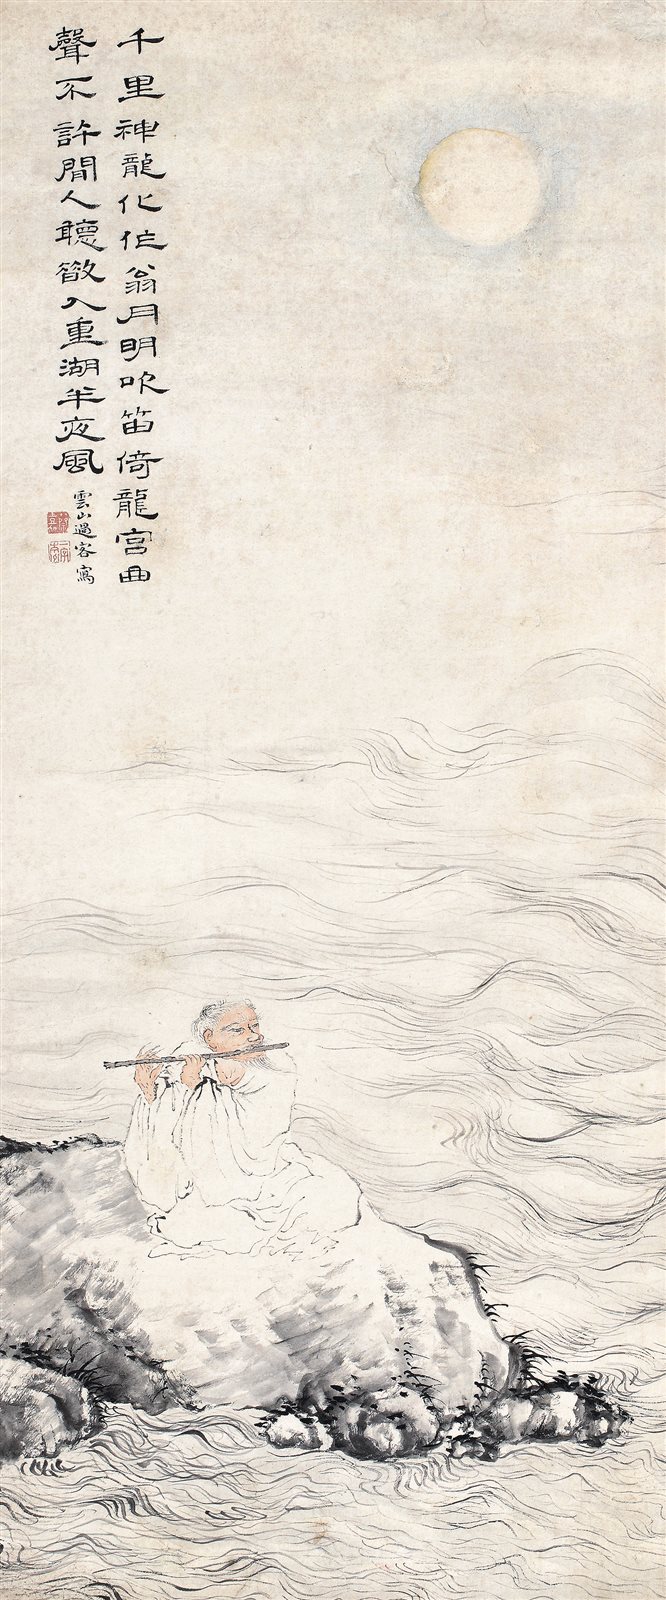 千里神龍化作翁月明吹笛倚龍宮曲
聲不許閒人聽欲入重湖半夜風
雲山過客寫